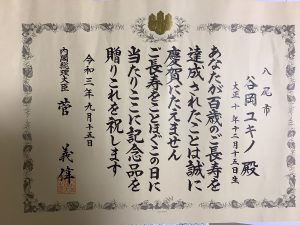 八尾市
谷岡ユキノ 殿
大正十年十二月十五日生
あなたが百歳のご長寿を
達成されたことは誠に
慶賀にたえません
ご長寿をことほぎこの日に
当たりここに記念品を
贈りこれを祝します
令和三年九月十五日
内閣総理大臣 菅 義偉